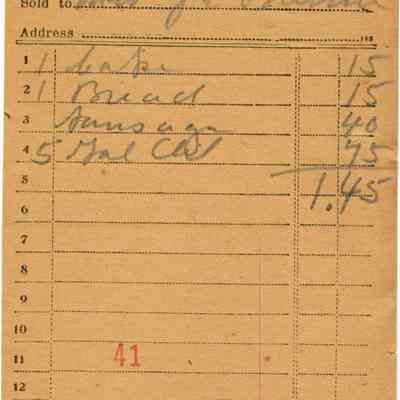 Sold to
Address 193
1 1 Cake 15
2 1 Bread 15
3 Sausage 40
4 5 Gal 75
5 1.45
6
7
8
9
10
11 41
12